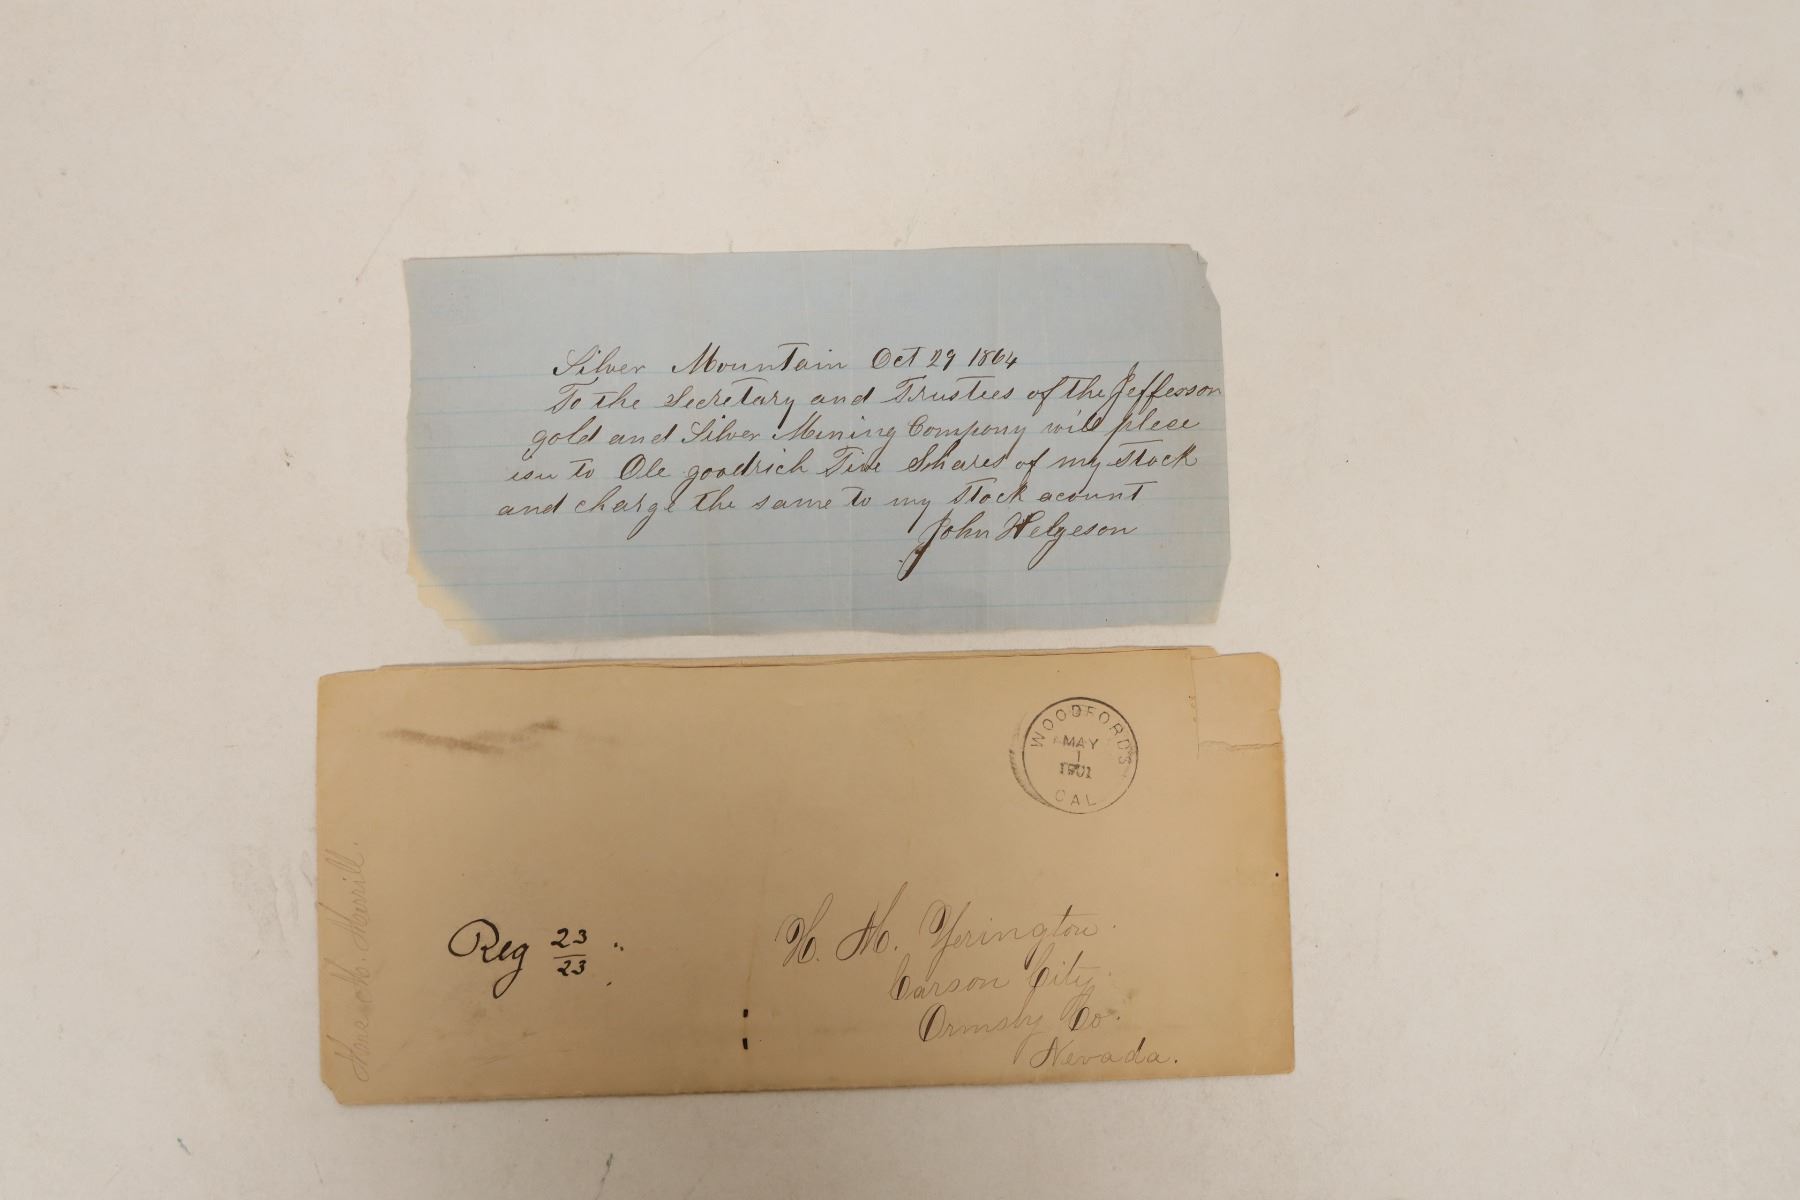 Silver Mountain Oct 29 1864
To the Secretary and Trustees of the Jefferson
gold and Silver Mining Company will plese
isu to Ole goodrich Five Shares of my stock
and charge the same to my stock acount
John Helgeson
WOODFORDS
MAY
1
1901
CAL
Reg 23/23
H. M. Yerington.
Carson City.
Ormsby Co.
Nevada.
Merrill.